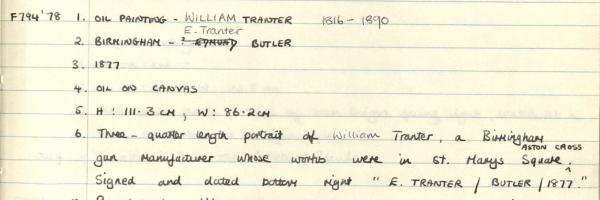 F794'78 1. OIL PAINTING - WILLIAM TRANTER 1816 - 1890
E. Tranter
2. BIRMINGHAM - ? EDMUND BUTLER
3. 1877
4. OIL ON CANVAS
5. H : 111.3 CM, W : 86.2 CM
6. Three-quarter length portrait of William Tranter, a Birmingham
ASTON CROSS
gun manufacturer whose works were in St. Marys Square.
Signed and dated bottom right "E. TRANTER / BUTLER / 1877."